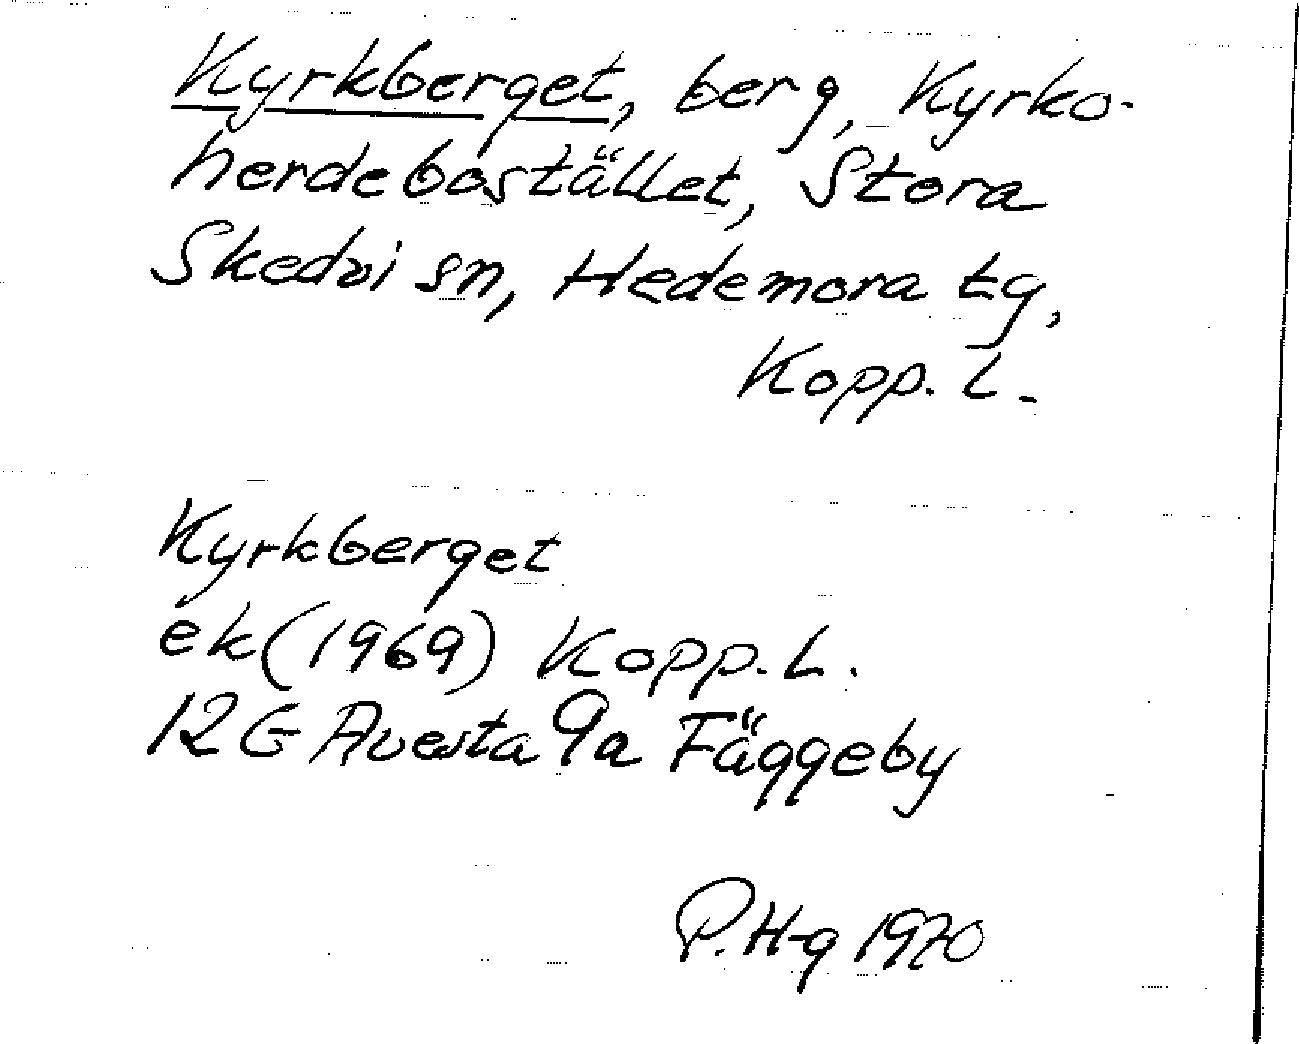 Kyrkberget, berg, Kyrko-
herdebostället, Stora
Skedvi sn, Hedemora tg,
Kopp. L.
Kyrkberget
ek (1969) Kopp. L.
12 G Avesta 9a Fäggeby
P. H-g 1970